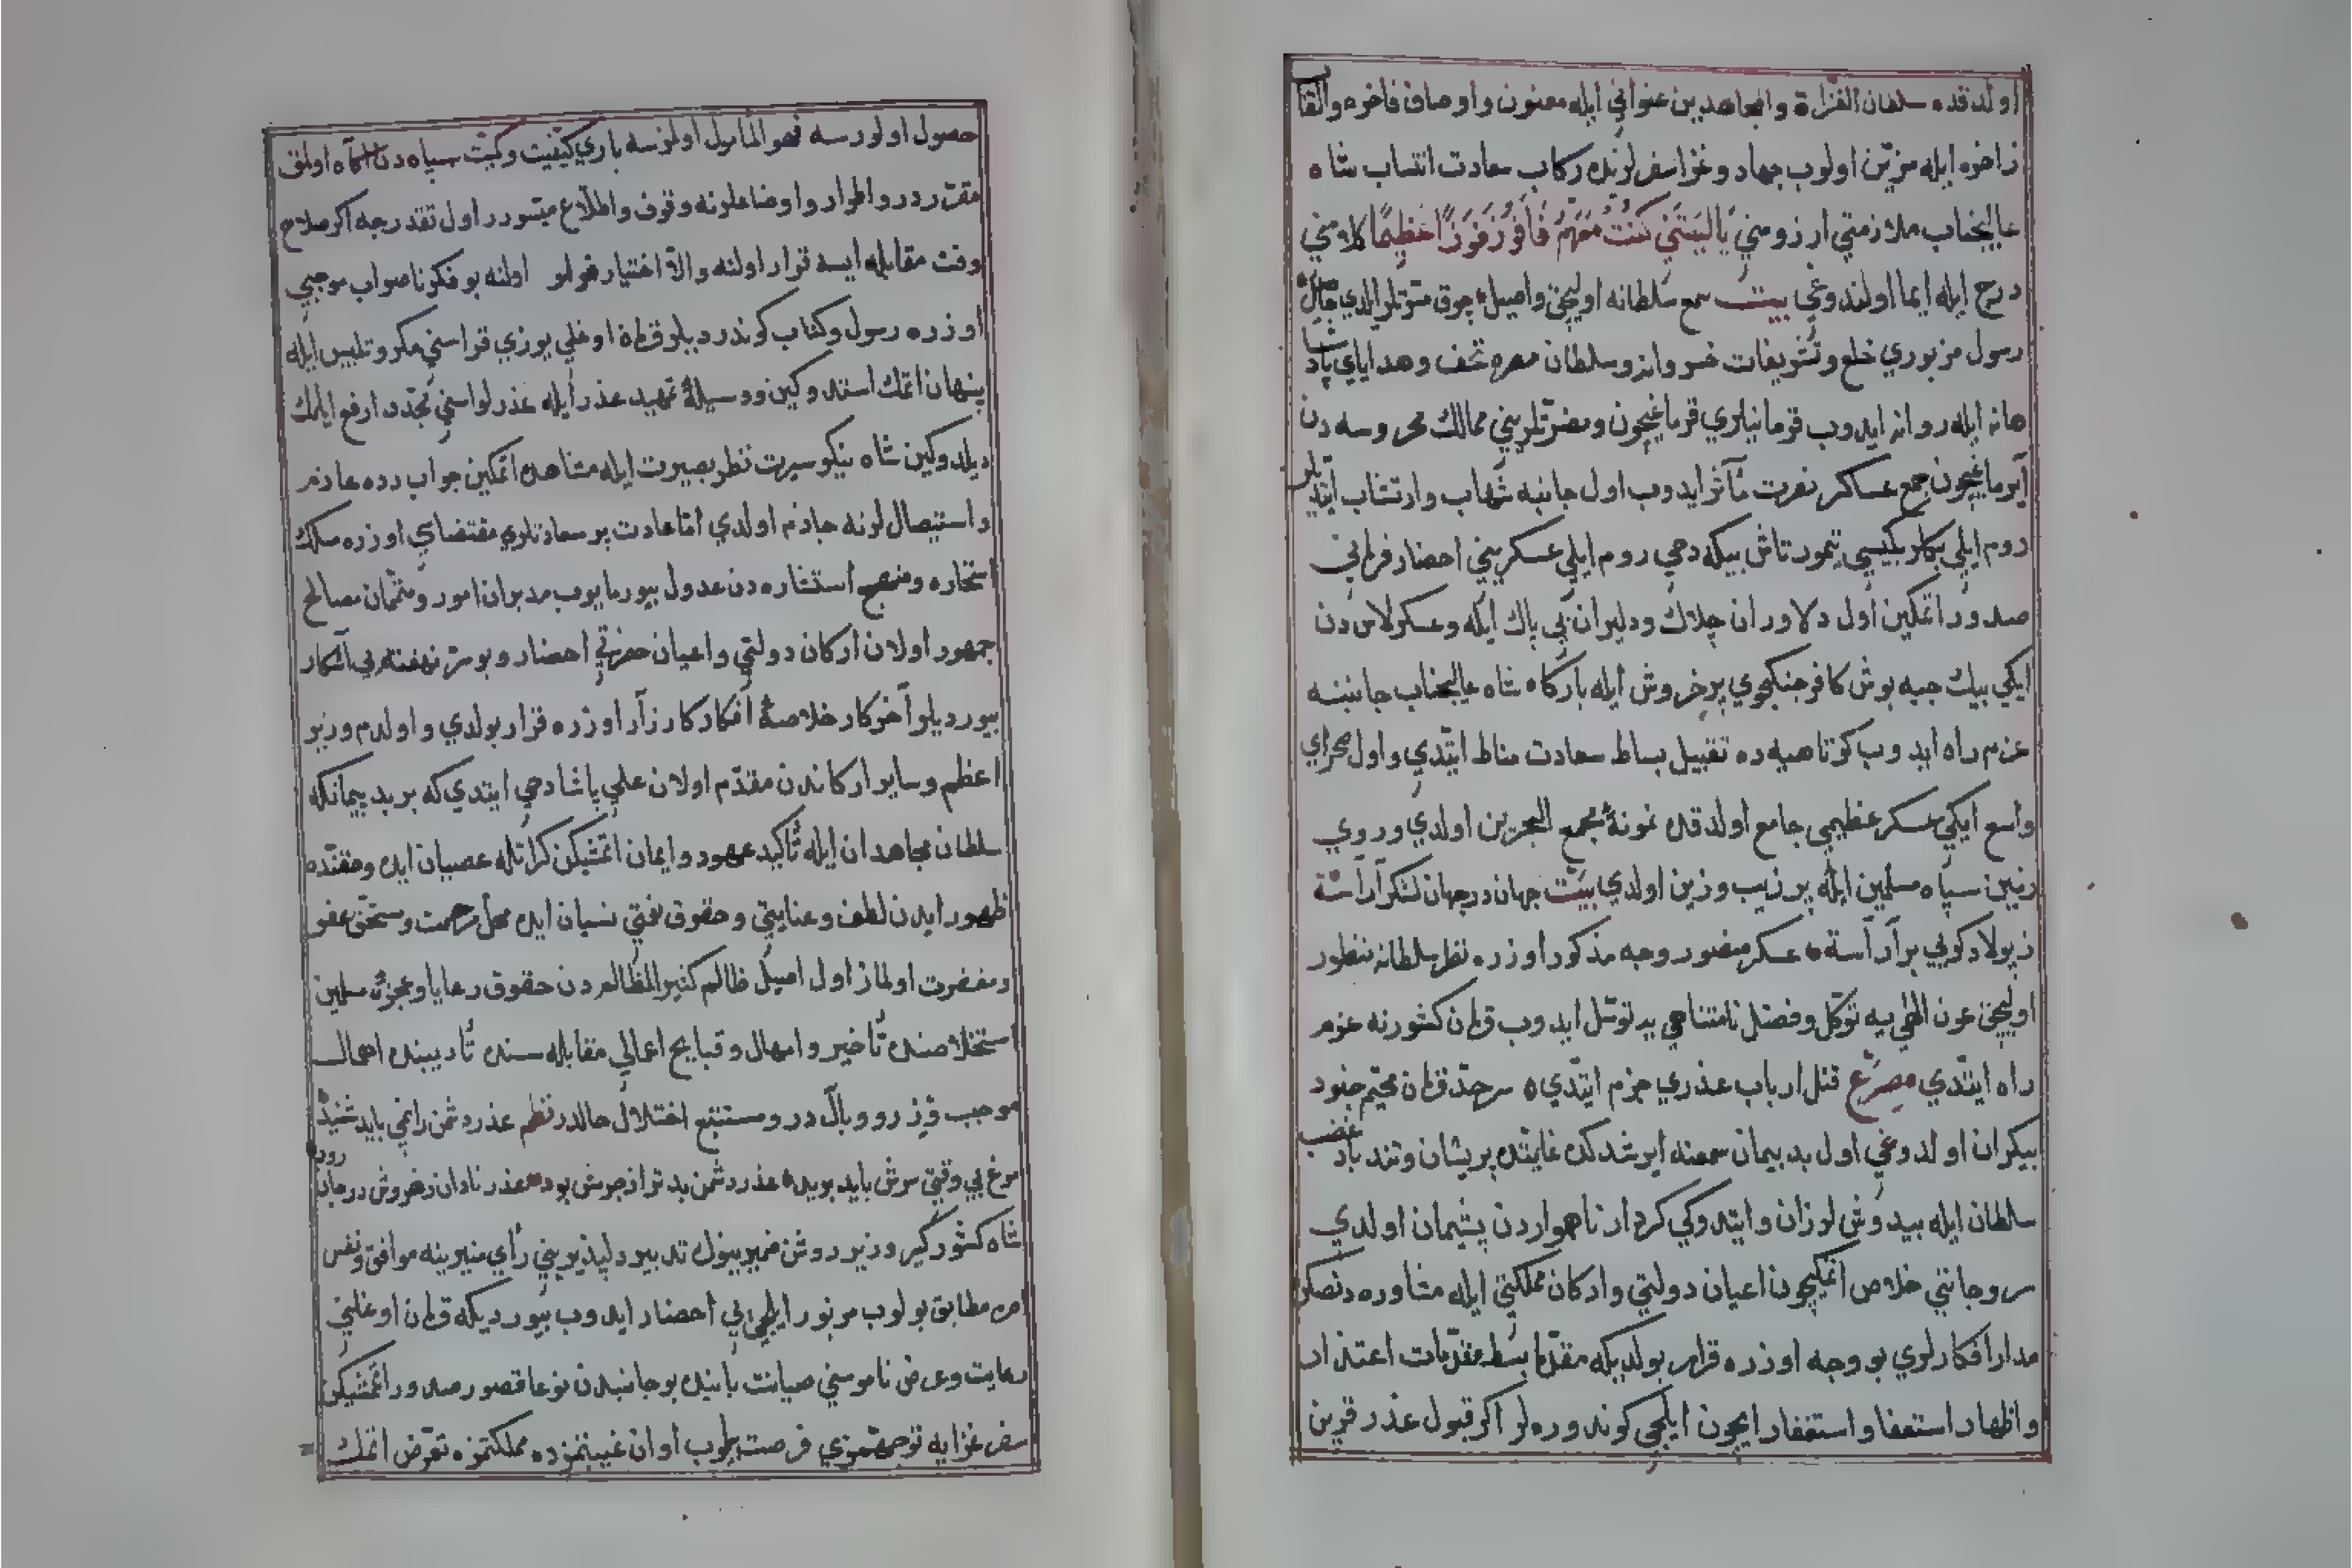 اولدقده سلطان الغزاة والمجاهدين عنواني ايله معنون واوصاف فاخره والقاب
زاخره ايله مزين اولوب جهاد وغزا سفرلرنده ركاب سعادت انتساب شاه
عاليجناب ملازمتي ارزوسني يَا لَيْتَنِي كُنْتُ مَعَهُمْ فَأَفُوزَ فَوْزًا عَظِيمًا كلامني
درج ايله ايما اولندوغي بيت سمع سلطانه اوليجق واصل چوق شوقلر ايلدي حاصل
رسول مزبوري خلع وتشريفات خسروانه وسلطان مصره تحف وهداياي پادشا
هانه ايله روانه ايدوب قرمانيلري قرماغيچون ومضرتلريني ممالك محروسه دن
آيرماغيچون جمع عساكر نصرت مآثر ايدوب اول جانبه شهاب وارتشاب ايتديلر
روم ايلي بكلربكيسي تيمورتاش بيكه دخي روم ايلي عسكريني احضار فرماني
صدور اتمكين اول دلاوران چلاك ودليران بي باك ايله وعسكر لاس دن
ايكي بيك جبه پوش كافر جنكجوي پرخروش ايله باركاه شاه عاليجناب جانبنه
عزم راه ايدوب كوتاهيه ده تقبيل بساط سعادت مناط ايتدي واول صحراي
واسع ايكي عسكر عظيمي جامع اولدقده نمونهٔ مجمع البحرين اولدي وروي
زمين سپاه مسلمين ايله پر زيب وزين اولدي بيت جهان در جهان لشكر آراسته
ز پولاد كوهي بر آراسته عسكر منصور وجه مذكور اوزره نظر سلطانه منظور
اوليجق عون الهي يه توكل وفضل نامتناهي يه توسل ايدوب قرمان كشورنه عزم
راه ايتدي مصرع قتل ارباب عذري جزم ايتدي سرحد قرمان مخيم جنود
بيكران اولدوغي اول بدپيمان سمعنه ايرشدكده غايتده پريشان وتندباد غضب
سلطان ايله بيدوش لرزان وايتدوكي كردار ناهمواردن پشيمان اولدي
سر وجانني خلاص اتمكيچون اعيان دولتي واركان مملكتي ايله مشاوره دنصكره
مدار افكارلري بو وجه اوزره قرار بولديكه مقدما بسط مقدمات اعتذار
واظهار استعفا واستغفار ايچون ايلچي كوندوره لر اكر قبول عذر قرين
حصول اولورسه فهو المأمول اولمزسه باري كيفيت وكميت سپاه دن آكاه اولمق
مقرردر واطوار واوضاعلرنه وقوف واطلاع ميسردر اول تقديرجه اكر صلاح
وقت مقابله ايسه قرار اولنه والا اختيار فرار اولنه بو فكر ناصواب موجبي
اوزره رسول وكتاب كوندرديلر قرمان اوغلي يوزي قراسني مكر وتلبيس ايله
پنهان اتمك استدوكين ووسيلهٔ تمهيد عذر ايله عذرلراسني مجدد ارفع ايلمك
ديلدوكين شاه نيكو سيرت نظر بصيرت ايله مشاهده اتمكين جواب رده عازم
واستيصاللرنه جازم اولدي اما عادت پر سعادتلري مقتضاسي اوزره مسلك
استخاره ومنهج استشاره دن عدول بيورمايوب مدبران امور ومتممان مصالح
جمهور اولان اركان دولتي واعيان حضرتي احضار وبو سر نهفته يي آشكار
بيورديلر آخر كار خلاصهٔ افكار كارزار اوزره قرار بولدي واولدم وزير
اعظم وساير اركاندن مقدم اولان علي پاشا دخي ايتدي كه بر بد پيمانكه
سلطان مجاهدان ايله تأكيد عهود وايمان اتمشيكن كراتله عصيان ايده ومقتده
ظهور ايدن لطف وعنايتي وحقوق نعمتي نسيان ايده محل مرحمت ومستحق عفو
ومغفرت اولماز اول اصيل ظالم كثير المظالمدن حقوق رعايا وعجزهٔ مسلمين
استخلاصنده تأخير وامهال وقبايح اعمالي مقابله سنده تأديبنده اهمال
موجب وزر ووبال در ومستتبع اختلال حالدر نظم عذر دشمن را نمي بايد شنيد
مرغ بي وقتي سرش بايد بريد عذر دشمن بدتر از جرمش بود عذر نادان زهروش در جان رود
شاه كشوركير وزير روشن ضميرينوك تدبير دلپذيريني رأي منيرينه موافق ونفس
امره مطابق بولوب مزبور ايلچي يي احضار ايدوب بيورديكه قرمان اوغلينك
رعايت وعرض ناموسني صيانت بابنده بو جانبدن نوعا قصور صدور اتمشيكن
سفر غزايه توجهمزي فرصت بلوب اوان غيبتمزده مملكتمزه تعرض اتمك